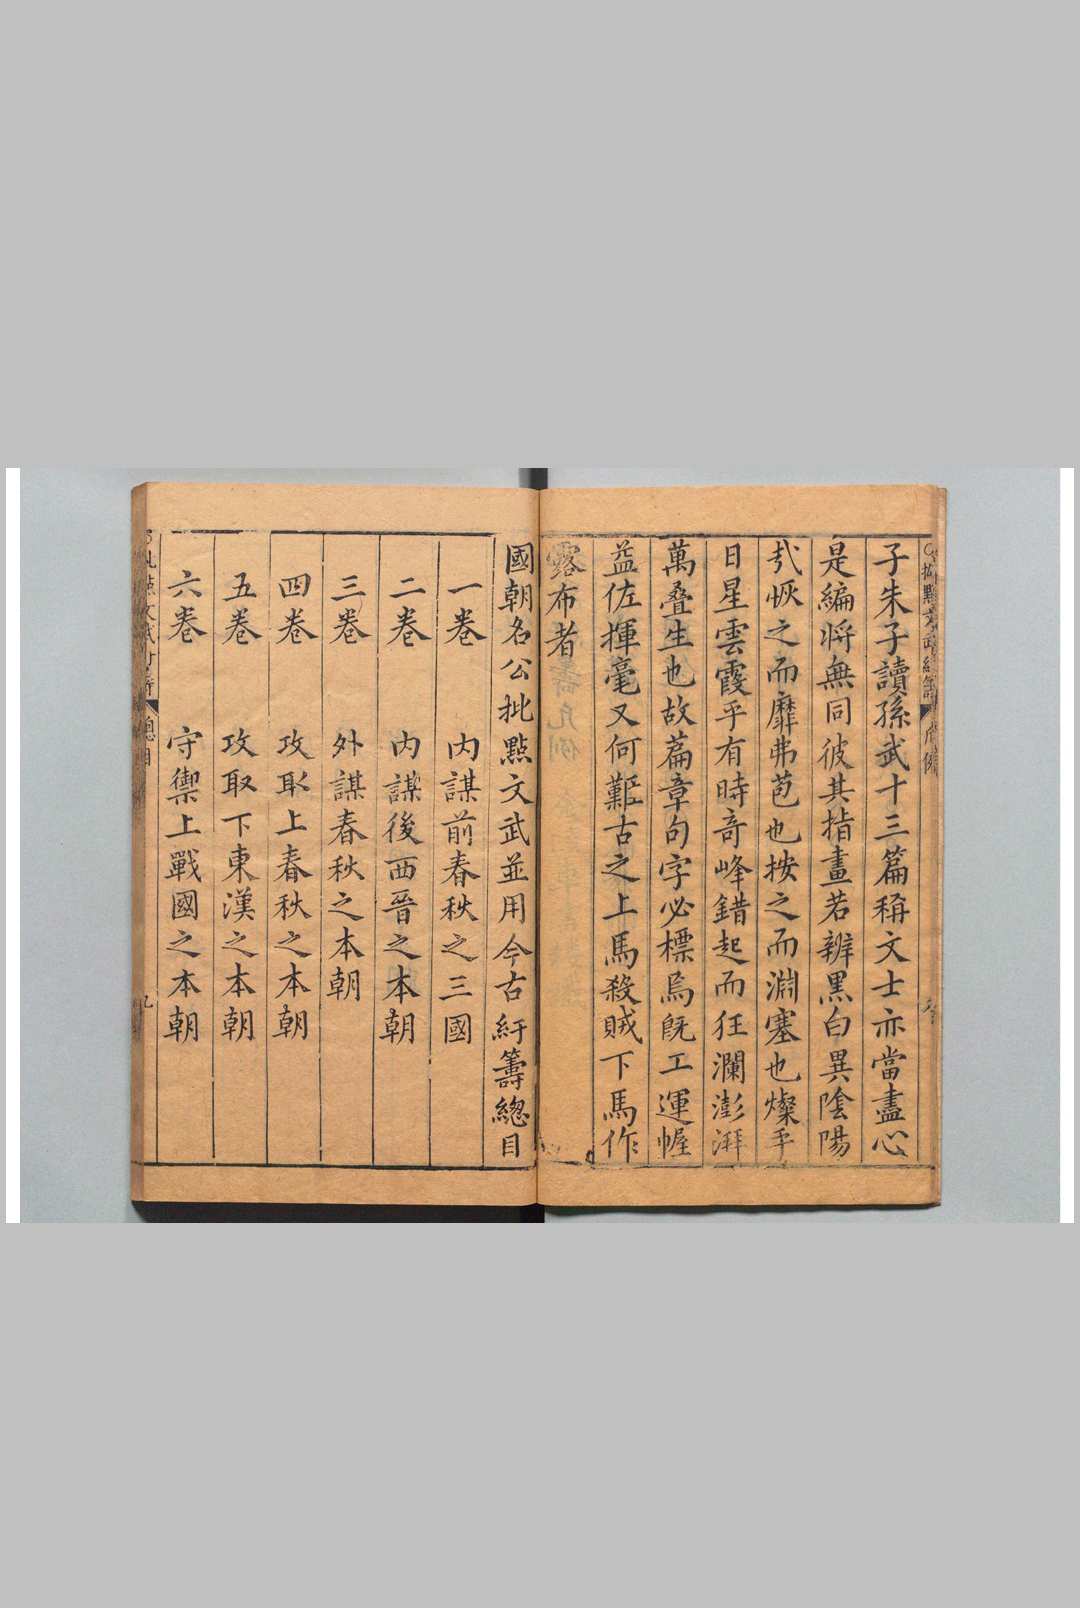 子朱子讀孫武十三篇稱文士亦當盡心
是編將無同彼其指畫若辨黑白異陰陽
恢之而靡弗苞也按之而淵塞也燦乎
日星雲霞乎有時奇峰錯起而狂瀾澎湃
萬叠生也故篇章句字必標焉既工運幄
益佐揮毫又何難古之上馬殺賊下馬作
露布者
國朝名公批點文武並用今古紆籌總目
一卷 内謀前春秋之三國
二卷 内謀後西晉之本朝
三卷 外謀春秋之本朝
四卷 攻取上春秋之本朝
五卷 攻取下東漢之本朝
六卷 守禦上戰國之本朝
總目
九